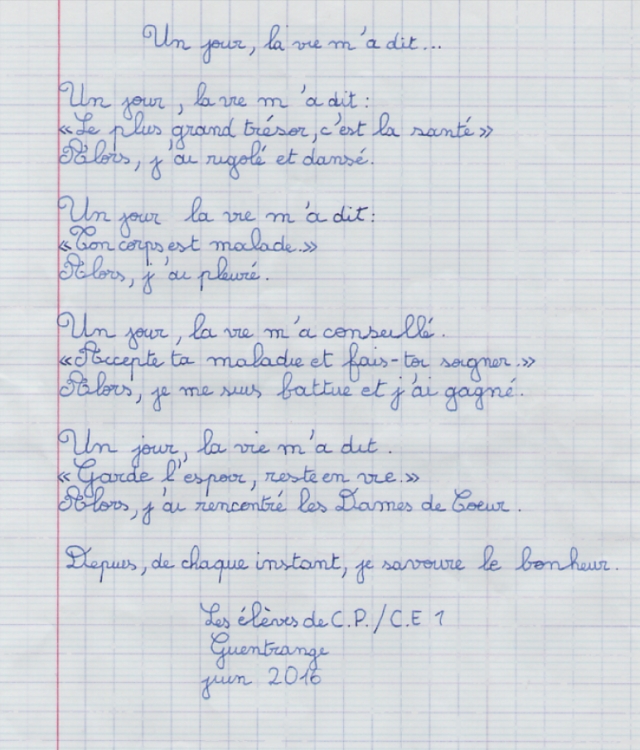 Un jour, la vie m'a dit...
Un jour, la vie m'a dit :
«Le plus grand trésor, c'est la santé»
Alors, j'ai rigolé et dansé.
Un jour la vie m'a dit :
«Ton corps est malade.»
Alors, j'ai pleuré.
Un jour, la vie m'a conseillé.
«Accepte ta maladie et fais-toi soigner.»
Alors, je me suis battue et j'ai gagné.
Un jour, la vie m'a dit.
«Garde l'espoir, reste en vie.»
Alors, j'ai rencontré les Dames de Coeur.
Depuis, de chaque instant, je savoure le bonheur.
Les élèves de C.P./C.E 1
Guentrange
juin 2016